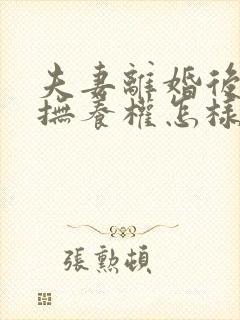 夫妻離婚後
撫養權怎樣
張勲頓